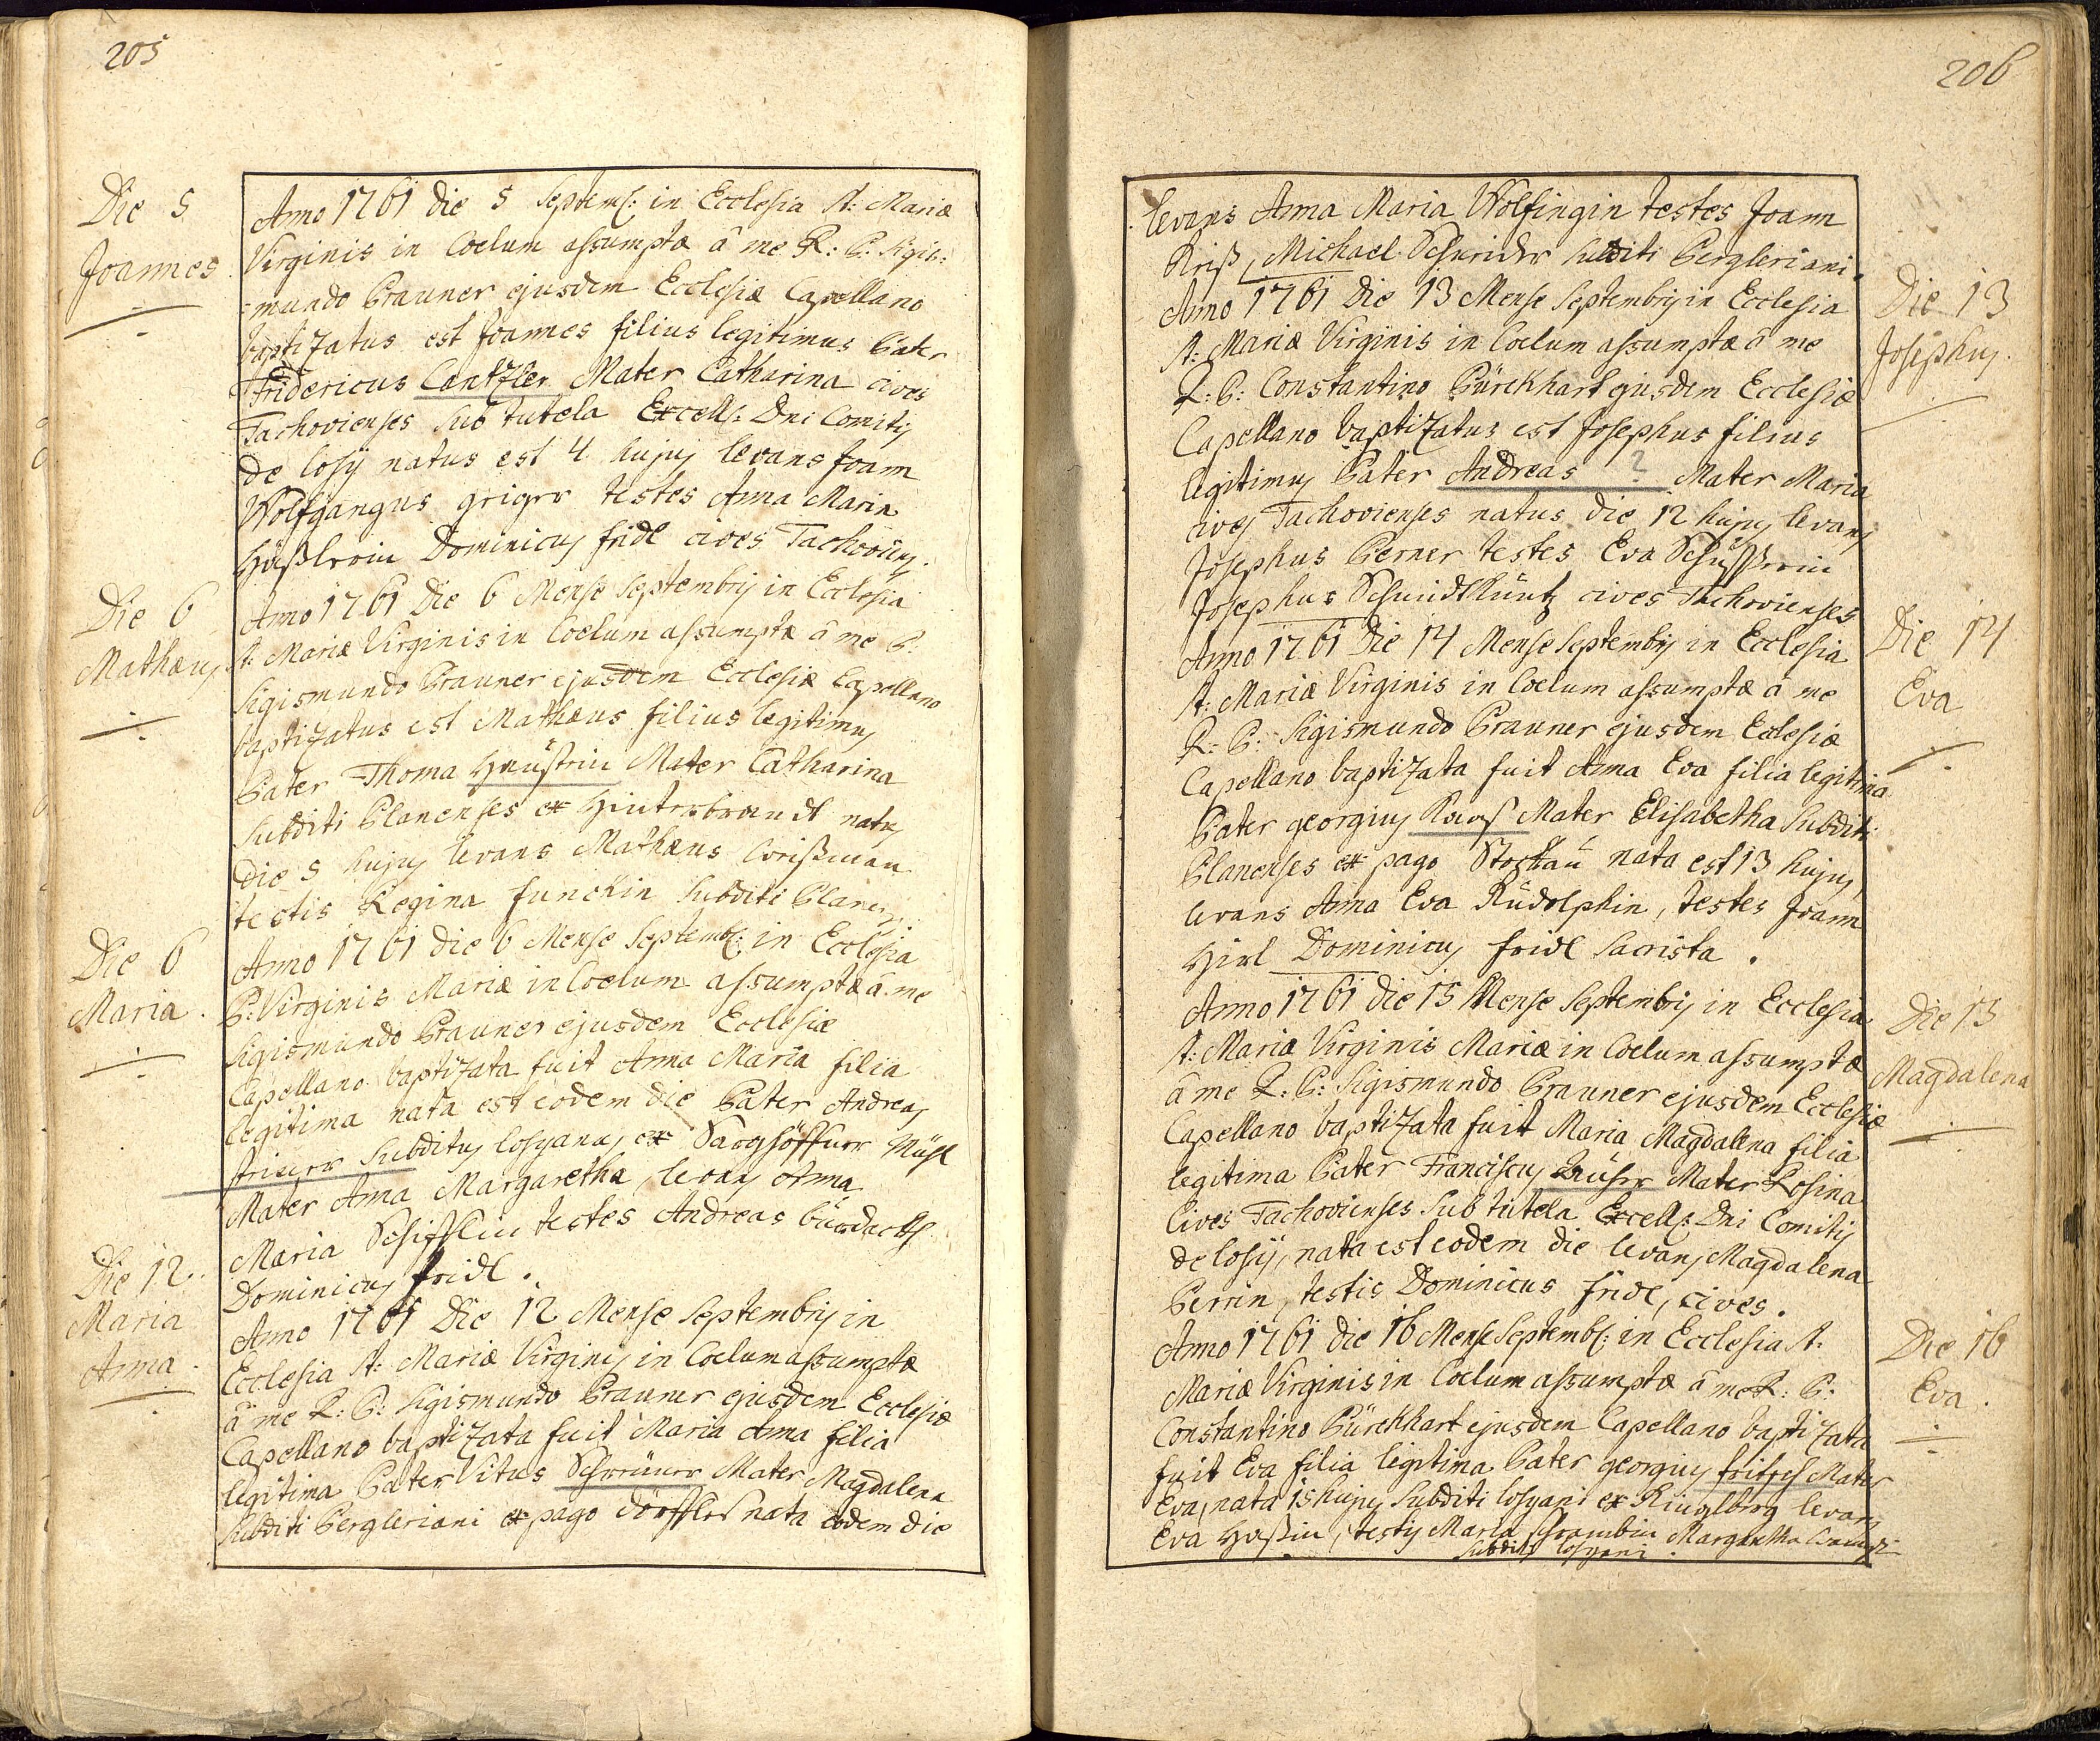 205
Die 5
Joannes.
Anno 1761 die 5 Septemb: in Ecclesia St: Mariæ
Virginis in Coelum assumptæ â me R: P: Sigis:
=mundo Prauner ejusdem Ecclesiæ Capellano
baptizatus est Joannes filius legitimus Pater
Fridericus Cantzler Mater Catharina cives
Tachovienses sub tutela Excells: Dni Comitis
de Losÿ natus est 4 hujus levans Joann
Wolfgangus testes Anna Maria
Dominicus fridl cives Tachovien:
Die 6
Mathæus
Anno 1761 Die 6 Mense Septembris in Ecclesia
St: Mariæ Virginis in Coelum assumptæ â me P:
Sigismundo Prauner ejusdem Ecclesiæ Capellano
baptizatus est Mathæus filius legitimus
Pater Thoma Mater Catharina
Subditi Planenses ex Hinterbrandt natus
die 5 hujus levans Mathæus
testis Regina funckin subditi Planens:
Die 6
Maria.
Anno 1761 die 6 Mense Septemb: in Ecclesia
B: Virginis Mariæ in Coelum assumptæ â me
Sigismundo Prauner ejusdem Ecclesiæ
Capellano baptizata fuit Anna Maria filia
legitima nata est eodem die Pater Andreas
Subditus Losyanus ex Mühl
Mater Anna Margaretha, levans Anna
Maria Schifflin testes Andreas
Dominicus fridl.
Die 12.
Maria
Anna.
Anno 1761 Die 12 Mense Septembris in
Ecclesia St: Mariæ Virginis in Coelum assumptæ
â me R: P: Sigismundo Prauner ejusdem Ecclesiæ
Capellano baptizata fuit Maria Anna filia
legitima Pater Vitus Mater Magdalena
Subditi Pergleriani ex pago nata eodem die
206
levans Anna Maria Wolfingin testes Joann
Kriß, Michael Schneider subditi Pergleriani.
Die 13
Josephus.
Anno 1761 Die 13 Mense Septembris in Ecclesia
St: Mariæ Virginis in Coelum assumptæ â me
R: P: Constantino Bürckhart ejusdem Ecclesiæ
Capellano baptizatus est Josephus filius
legitimus Pater Andreas ? Mater Maria
cives Tachovienses natus die 12 hujus levans
Josephus Berner testes Eva
Josephus cives Tachovienses
Die 14
Eva
Anno 1761 Die 14 Mense Septembris in Ecclesia
St: Mariæ Virginis in Coelum assumptæ â me
R: P: Sigismundo Prauner ejusdem Ecclesiæ
Capellano baptizata fuit Anna Eva filia legitima
Pater georgius Mater Elisabetha Subditi
Planenses ex pago Stockau nata est 13 hujus,
levans Anna Eva Rudolphin, testes Joann
Hirl Dominicus fridl Sacrista.
Die 15
Magdalena
Anno 1761 die 15 Mense Septembris in Ecclesia
St: Mariæ Virginis Mariæ in Coelum assumptæ
â me R: P: Sigismundo Prauner ejusdem Ecclesiæ
Capellano baptizata fuit Maria Magdalena filia
legitima Pater Franciscus Mater Rosina
Cives Tachovienses Sub tutela Excells: Dni Comitis
de Losÿ, nata est eodem die levans Magdalena
testis Dominicus fridl, cives.
Die 16
Eva.
Anno 1761 die 16 Mense Septemb: in Ecclesia St:
Mariæ Virginis in Coelum assumptæ â me R: P:
Constantino Bürckhart ejusdem Capellano baptizata
fuit Eva filia legitima Pater georgius fritsch Mater
Eva, nata 15 hujus subditi losyani ex Ringlberg levans
Eva testis Maria Margaretha
subditi losyani.